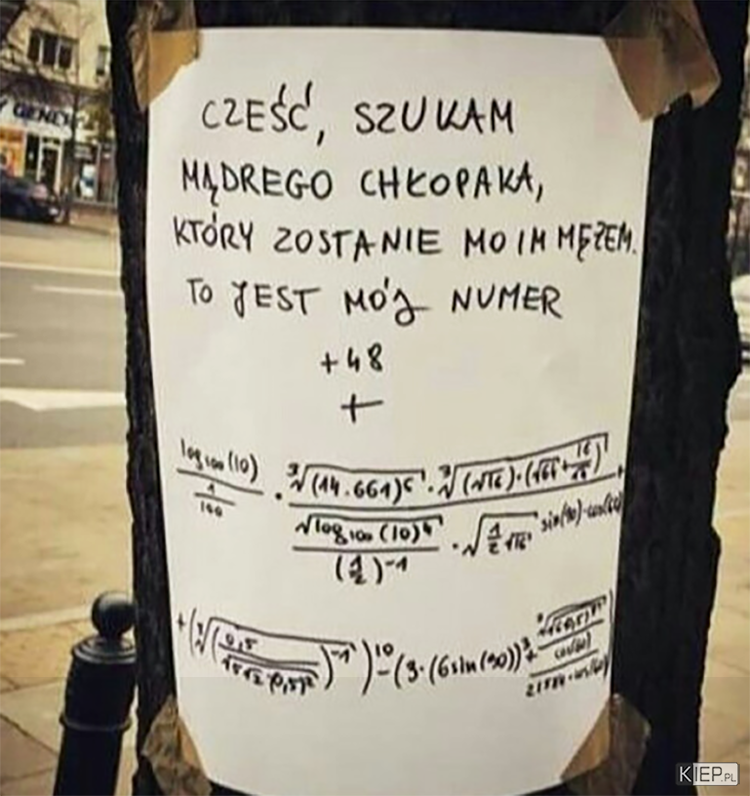 CZEŚĆ, SZUKAM
MĄDREGO CHŁOPAKA,
KTÓRY ZOSTANIE MOIM MĘŻEM.
TO JEST MÓJ NUMER
+48
+
log₁₀₀(10) / (1/100) · ∛(14.661)⁶ · ∛(√16)·(√64+16/
√log₁₀₀(10)⁴ / (1/2)⁻¹ · √(1/2 √16) sin(90)·cos(60)
+ (0,5 / )⁻¹)¹⁰ − (3·(6sin(90))³ +
KIEP.PL